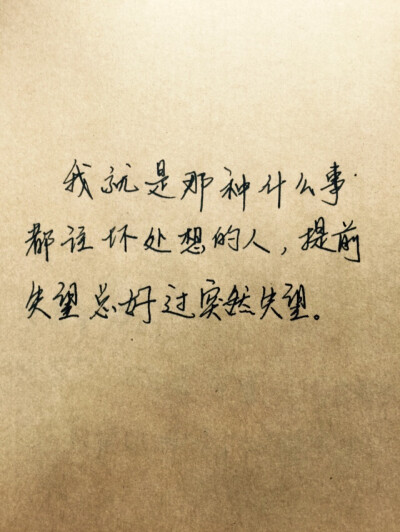 我就是那种什么事
都往坏处想的人，提前
失望总好过突然失望。